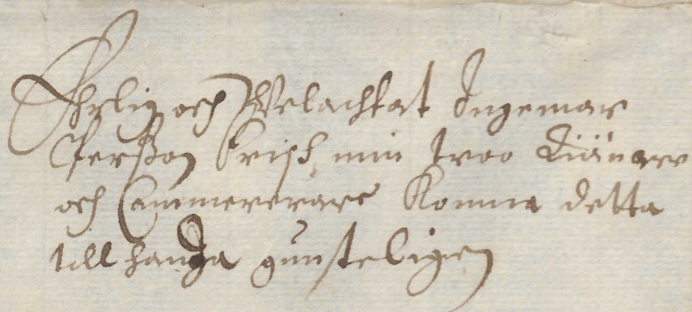 Ehrlig och Welachtat Ingemar
Perßon min troo Tiänare
och Cammererare Komma detta
till handa gunsteligen